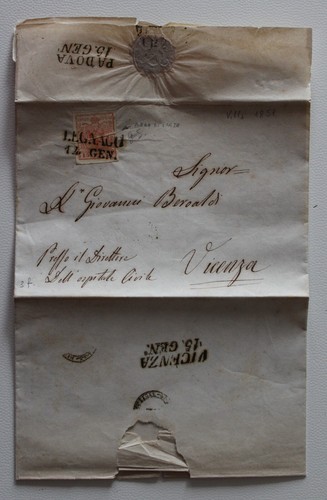 PADOVA
15. GEN.
LEGNAGO
14. GEN.
Signor
Giovanni Beroaldi
Presso il Direttore
Dell ospitale Civile
Vicenza
VICENZA
15. GEN.